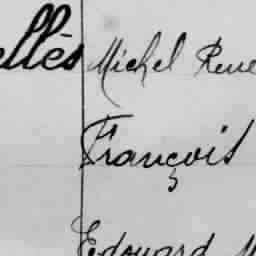 ellès Michel René
François
Edouard M